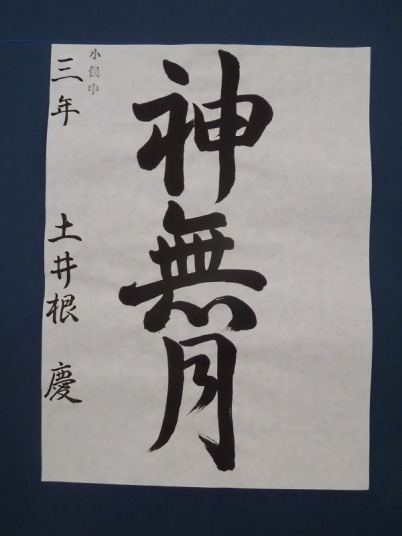 神無月
小俣中
三年 土井根 慶